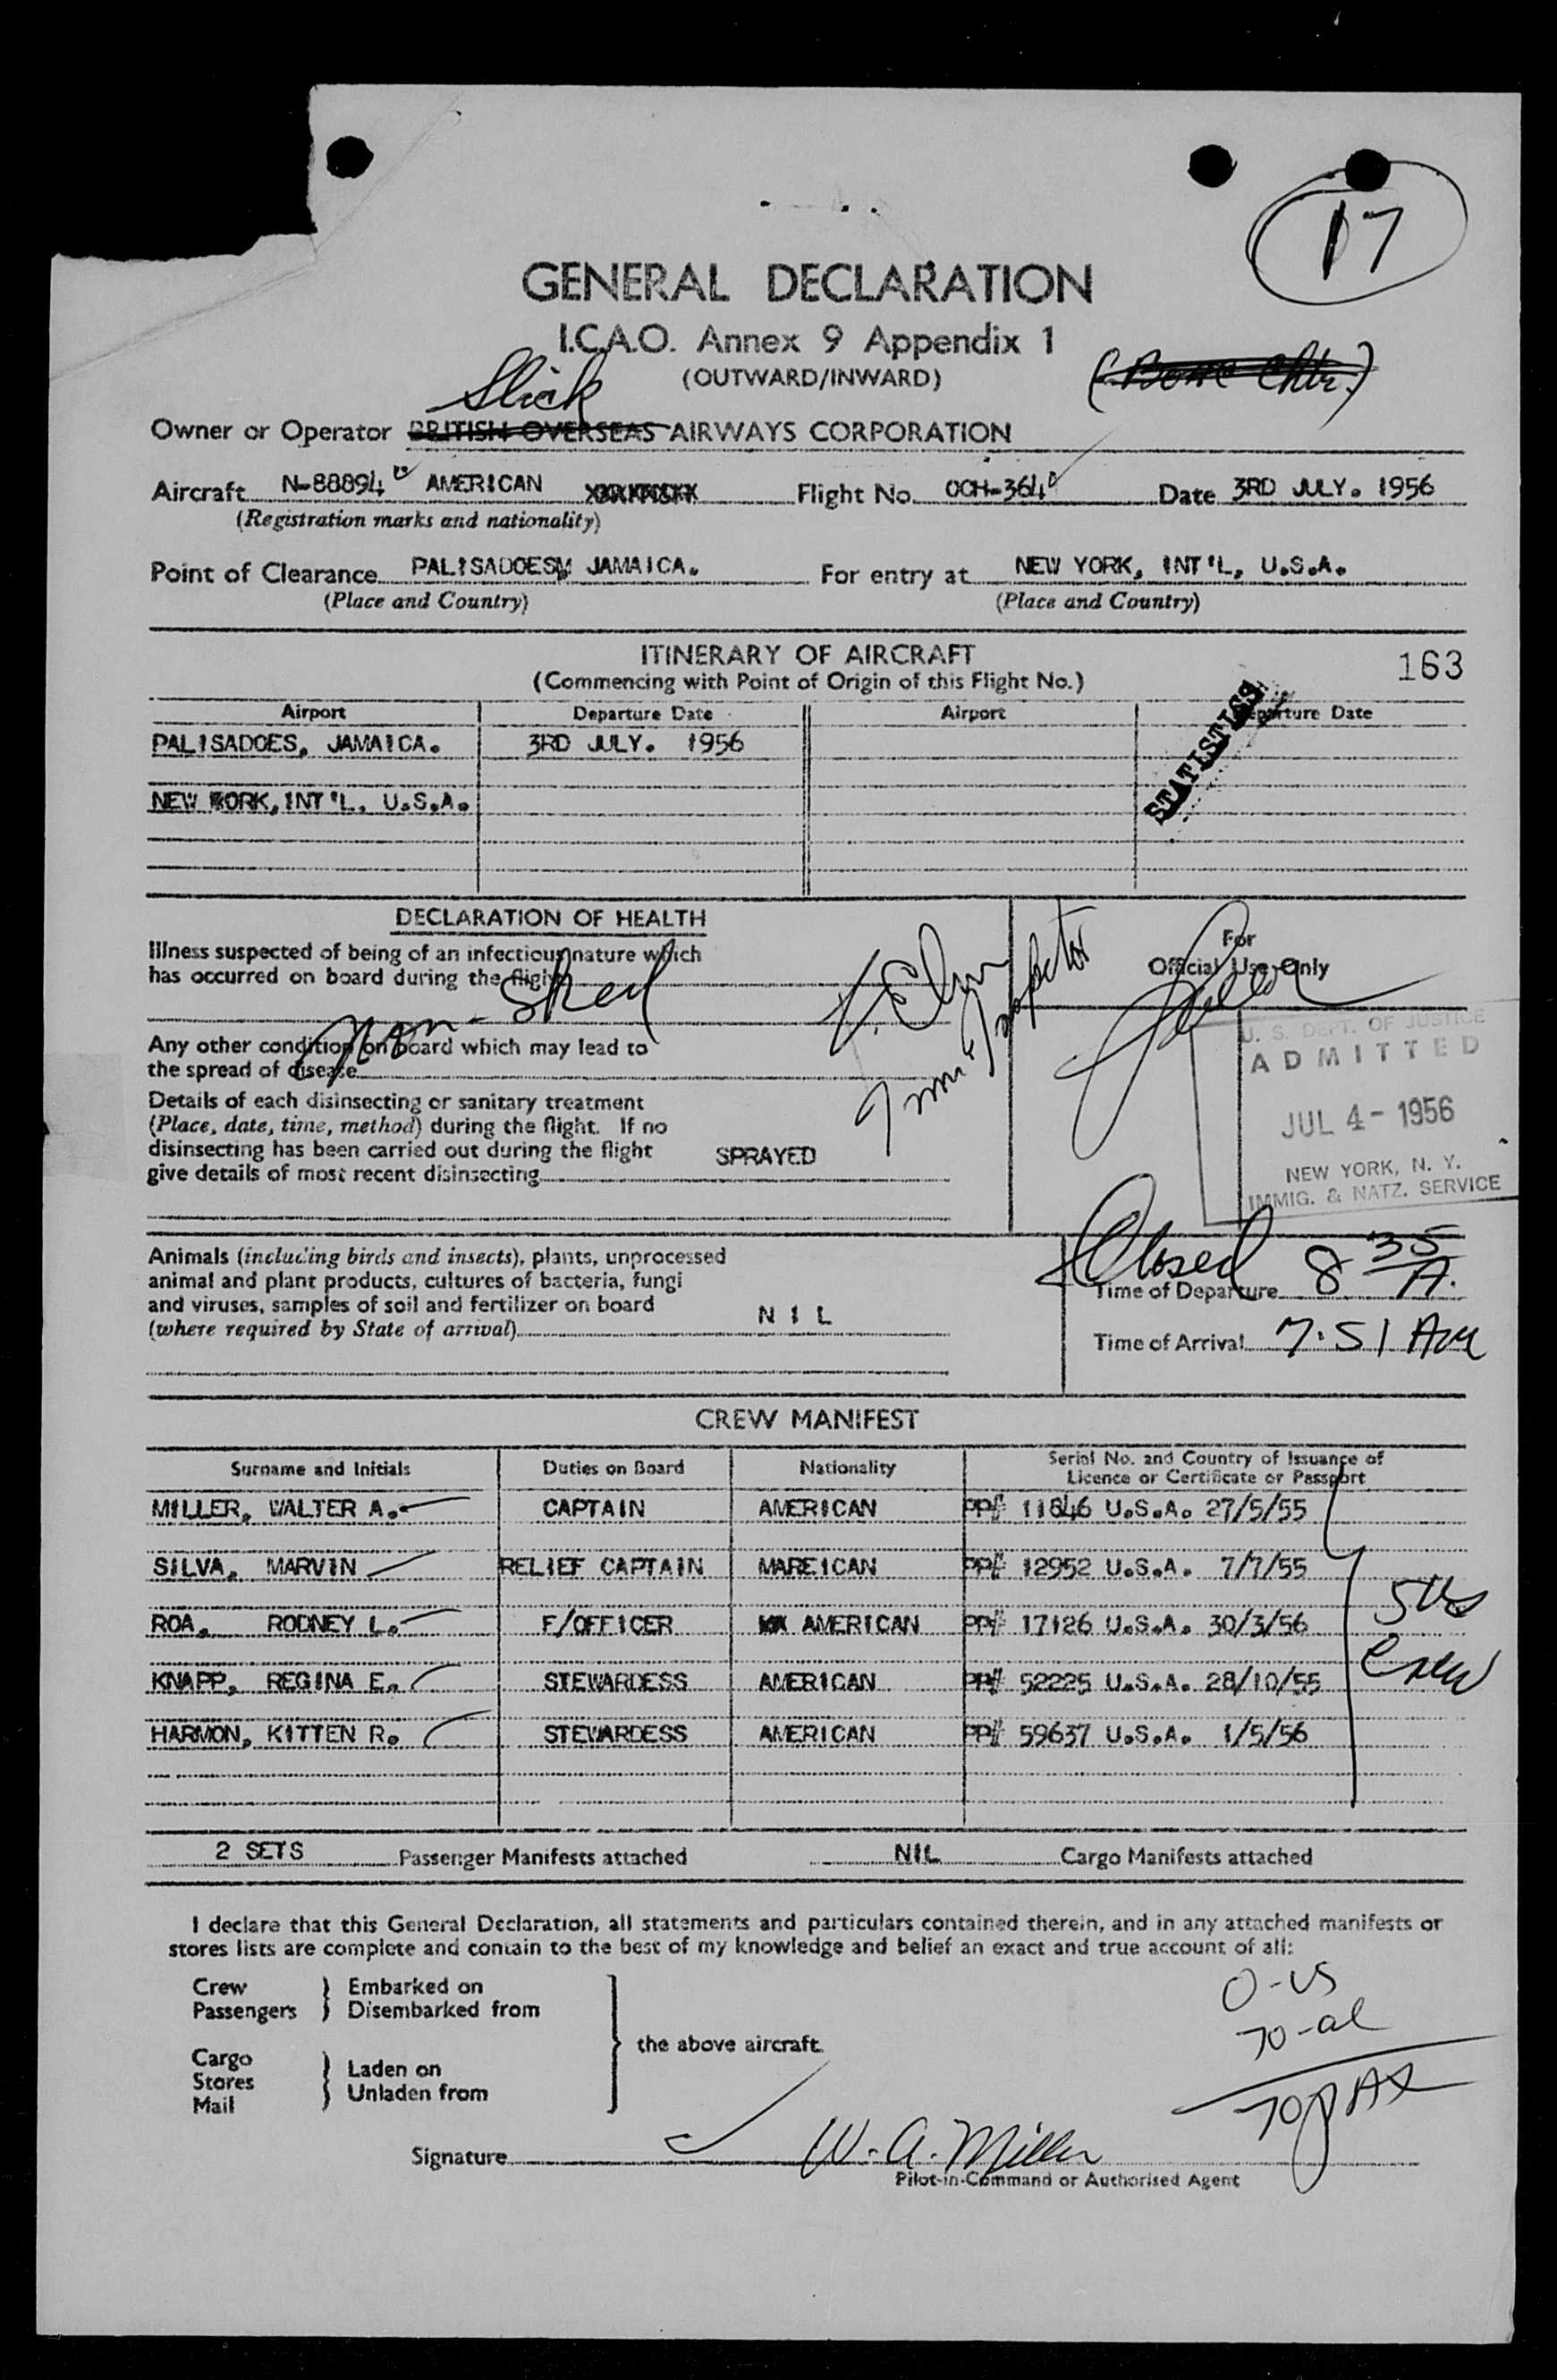 17
GENERAL DECLARATION
I.C.A.O. Annex 9 Appendix 1
(OUTWARD/INWARD)
Slick
(BOAC Chtr.)
Owner or Operator BRITISH OVERSEAS AIRWAYS CORPORATION
Aircraft N-88894 AMERICAN Flight No. OCH-364 Date 3RD JULY. 1956
(Registration marks and nationality)
Point of Clearance PALISADOES, JAMAICA. For entry at NEW YORK, INT'L, U.S.A.
(Place and Country) (Place and Country)
ITINERARY OF AIRCRAFT
163
(Commencing with Point of Origin of this Flight No.)
Airport Departure Date Airport Departure Date
STATISTICS
PALISADOES, JAMAICA. 3RD JULY. 1956
NEW YORK, INT'L, U.S.A.
DECLARATION OF HEALTH
For
Official Use Only
Illness suspected of being of an infectious nature which
has occurred on board during the flight
Non-Sked
Immig Inspector
Any other condition on board which may lead to
the spread of disease
U. S. DEPT. OF JUSTICE
ADMITTED
JUL 4- 1956
NEW YORK, N. Y.
IMMIG. & NATZ. SERVICE
Details of each disinsecting or sanitary treatment
(Place, date, time, method) during the flight. If no
disinsecting has been carried out during the flight SPRAYED
give details of most recent disinsecting
Animals (including birds and insects), plants, unprocessed
animal and plant products, cultures of bacteria, fungi
and viruses, samples of soil and fertilizer on board N I L
(where required by State of arrival)
Closed 8 35 A.
Time of Departure
Time of Arrival 7:51 AM
CREW MANIFEST
Surname and Initials Duties on Board Nationality Serial No. and Country of Issuance of
Licence or Certificate or Passport
MILLER, WALTER A. CAPTAIN AMERICAN PP# 11846 U.S.A. 27/5/55
SILVA, MARVIN RELIEF CAPTAIN MAREICAN PP# 12952 U.S.A. 7/7/55
ROA, RODNEY L. F/OFFICER AMERICAN PP# 17126 U.S.A. 30/3/56
KNAPP, REGINA E. STEWARDESS AMERICAN PP# 52225 U.S.A. 28/10/55
HARMON, KITTEN R. STEWARDESS AMERICAN PP# 59637 U.S.A. 1/5/56
5 US
Crew
2 SETS Passenger Manifests attached NIL Cargo Manifests attached
I declare that this General Declaration, all statements and particulars contained therein, and in any attached manifests or
stores lists are complete and contain to the best of my knowledge and belief an exact and true account of all:
Crew Embarked on
Passengers Disembarked from
the above aircraft.
Cargo
Stores Laden on
Mail Unladen from
0-US
70-al
70 pAX
Signature W. A. Miller
Pilot-in-Command or Authorised Agent